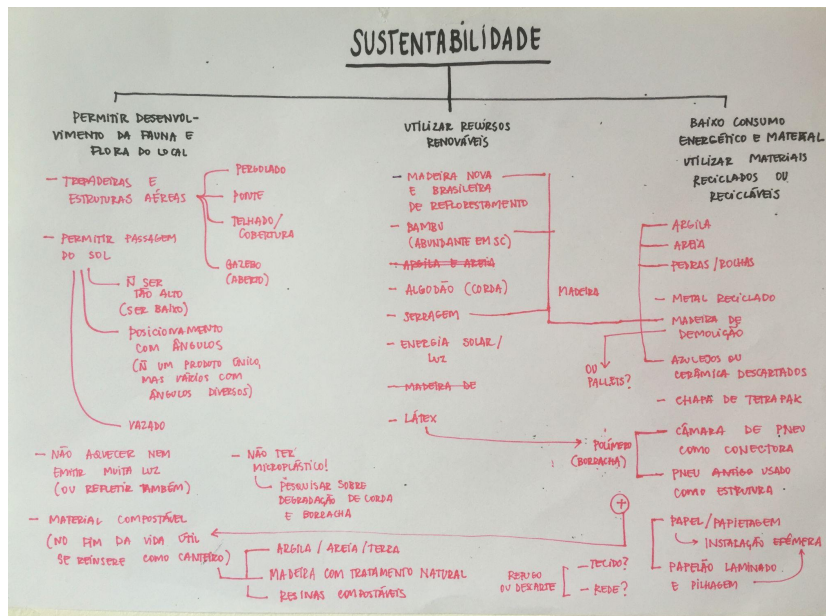 SUSTENTABILIDADE
PERMITIR DESENVOL-
VIMENTO DA FAUNA E
FLORA DO LOCAL
- TREPADEIRAS E
ESTRUTURAS AÉREAS
PERGOLADO
PONTE
TELHADO/
COBERTURA
GAZEBO
(ABERTO)
- PERMITIR PASSAGEM
DO SOL
Ñ SER
TÃO ALTO
(SER BAIXO)
POSICIONAMENTO
COM ÂNGULOS
(Ñ UM PRODUTO ÚNICO,
MAS VÁRIOS COM
ÂNGULOS DIVERSOS)
VAZADO
- NÃO AQUECER NEM
EMITIR MUITA LUZ
(OU REFLETIR TAMBÉM)
- NÃO TER
MICROPLÁSTICO!
PESQUISAR SOBRE
DEGRADAÇÃO DE CORDA
E BORRACHA
- MATERIAL COMPOSTÁVEL
(NO FIM DA VIDA ÚTIL
SE REINSERE COMO CANTEIRO)
- ARGILA / AREIA / TERRA
MADEIRA COM TRATAMENTO NATURAL
- RESINAS COMPOSTÁVEIS
UTILIZAR RECURSOS
RENOVÁVEIS
- MADEIRA NOVA
E BRASILEIRA
DE REFLORESTAMENTO
- BAMBU
(ABUNDANTE EM SC)
- ARGILA E AREIA
- ALGODÃO (CORDA)
- SERRAGEM
- ENERGIA SOLAR/
LUZ
- MADEIRA DE
- LÁTEX
MADEIRA
BAIXO CONSUMO
ENERGÉTICO E MATERIAL
UTILIZAR MATERIAIS
RECICLADOS OU
RECICLÁVEIS
- ARGILA
- AREIA
- PEDRAS/ROCHAS
- METAL RECICLADO
MADEIRA DE
DEMOLIÇÃO
OU
PALLETS?
- AZULEJOS OU
CERÂMICA DESCARTADOS
- CHAPA DE TETRAPAK
POLÍMERO
(BORRACHA)
- CÂMARA DE PNEU
COMO CONECTORA
- PNEU ANTIGO USADO
COMO ESTRUTURA
+
- PAPEL/PAPIETAGEM
INSTALAÇÃO EFÊMERA
PAPELÃO LAMINADO
E PILHAGEM
REFUGO
OU DESCARTE
- TECIDO?
- REDE?